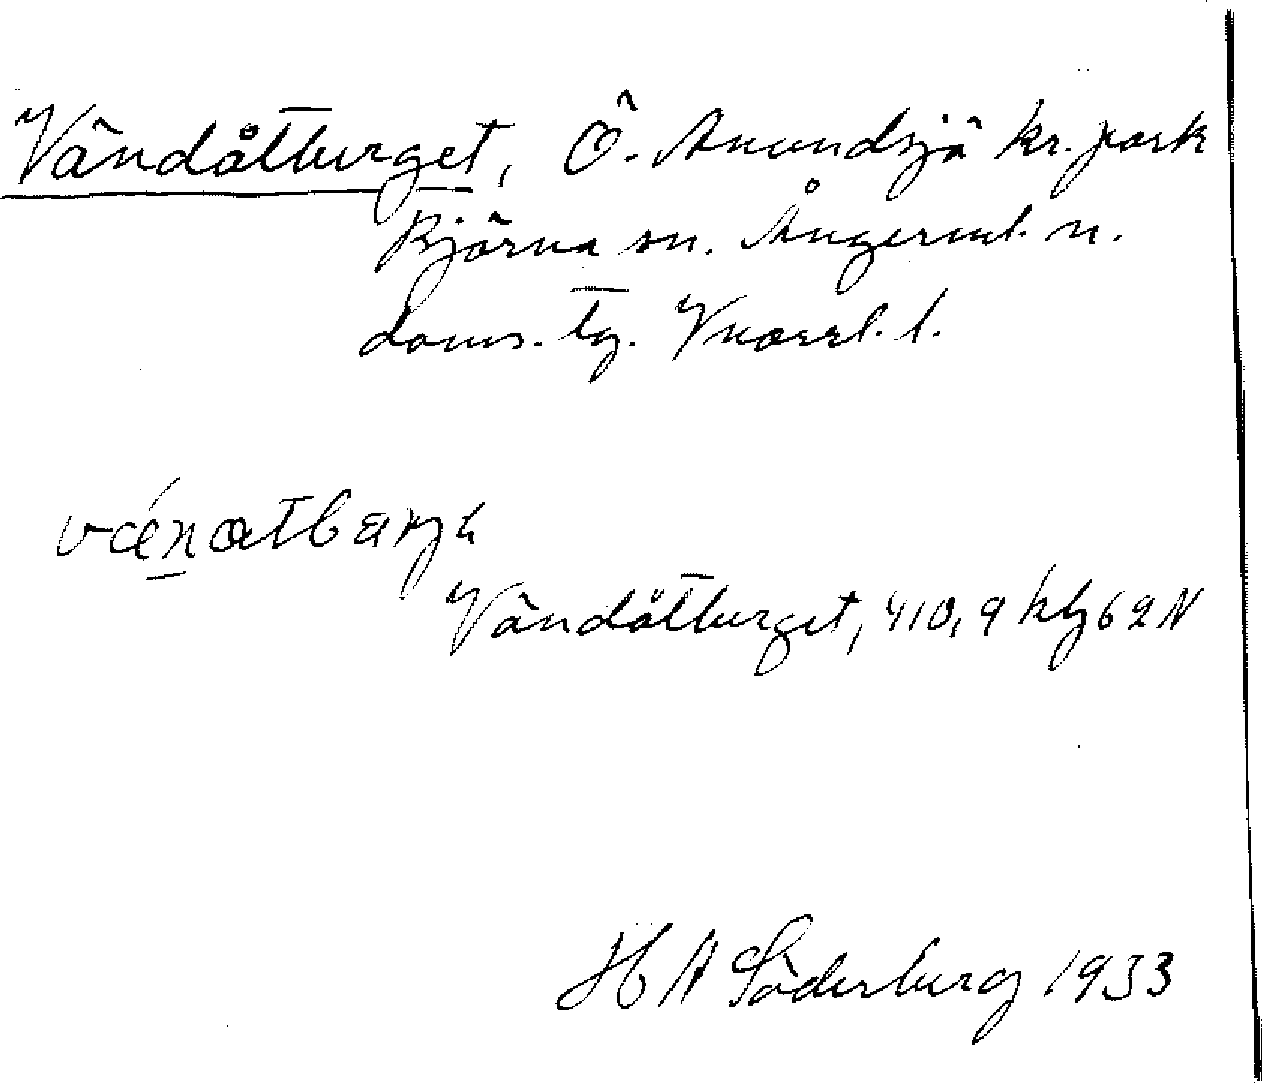 Vändåtberget, Ö. Anundsjö kr. park
Björna sn. Ångerml. n.
doms. tg. Vnorrl. l.
Vändåtberget, 410,9 kbg 62 N
H A Söderberg 1933